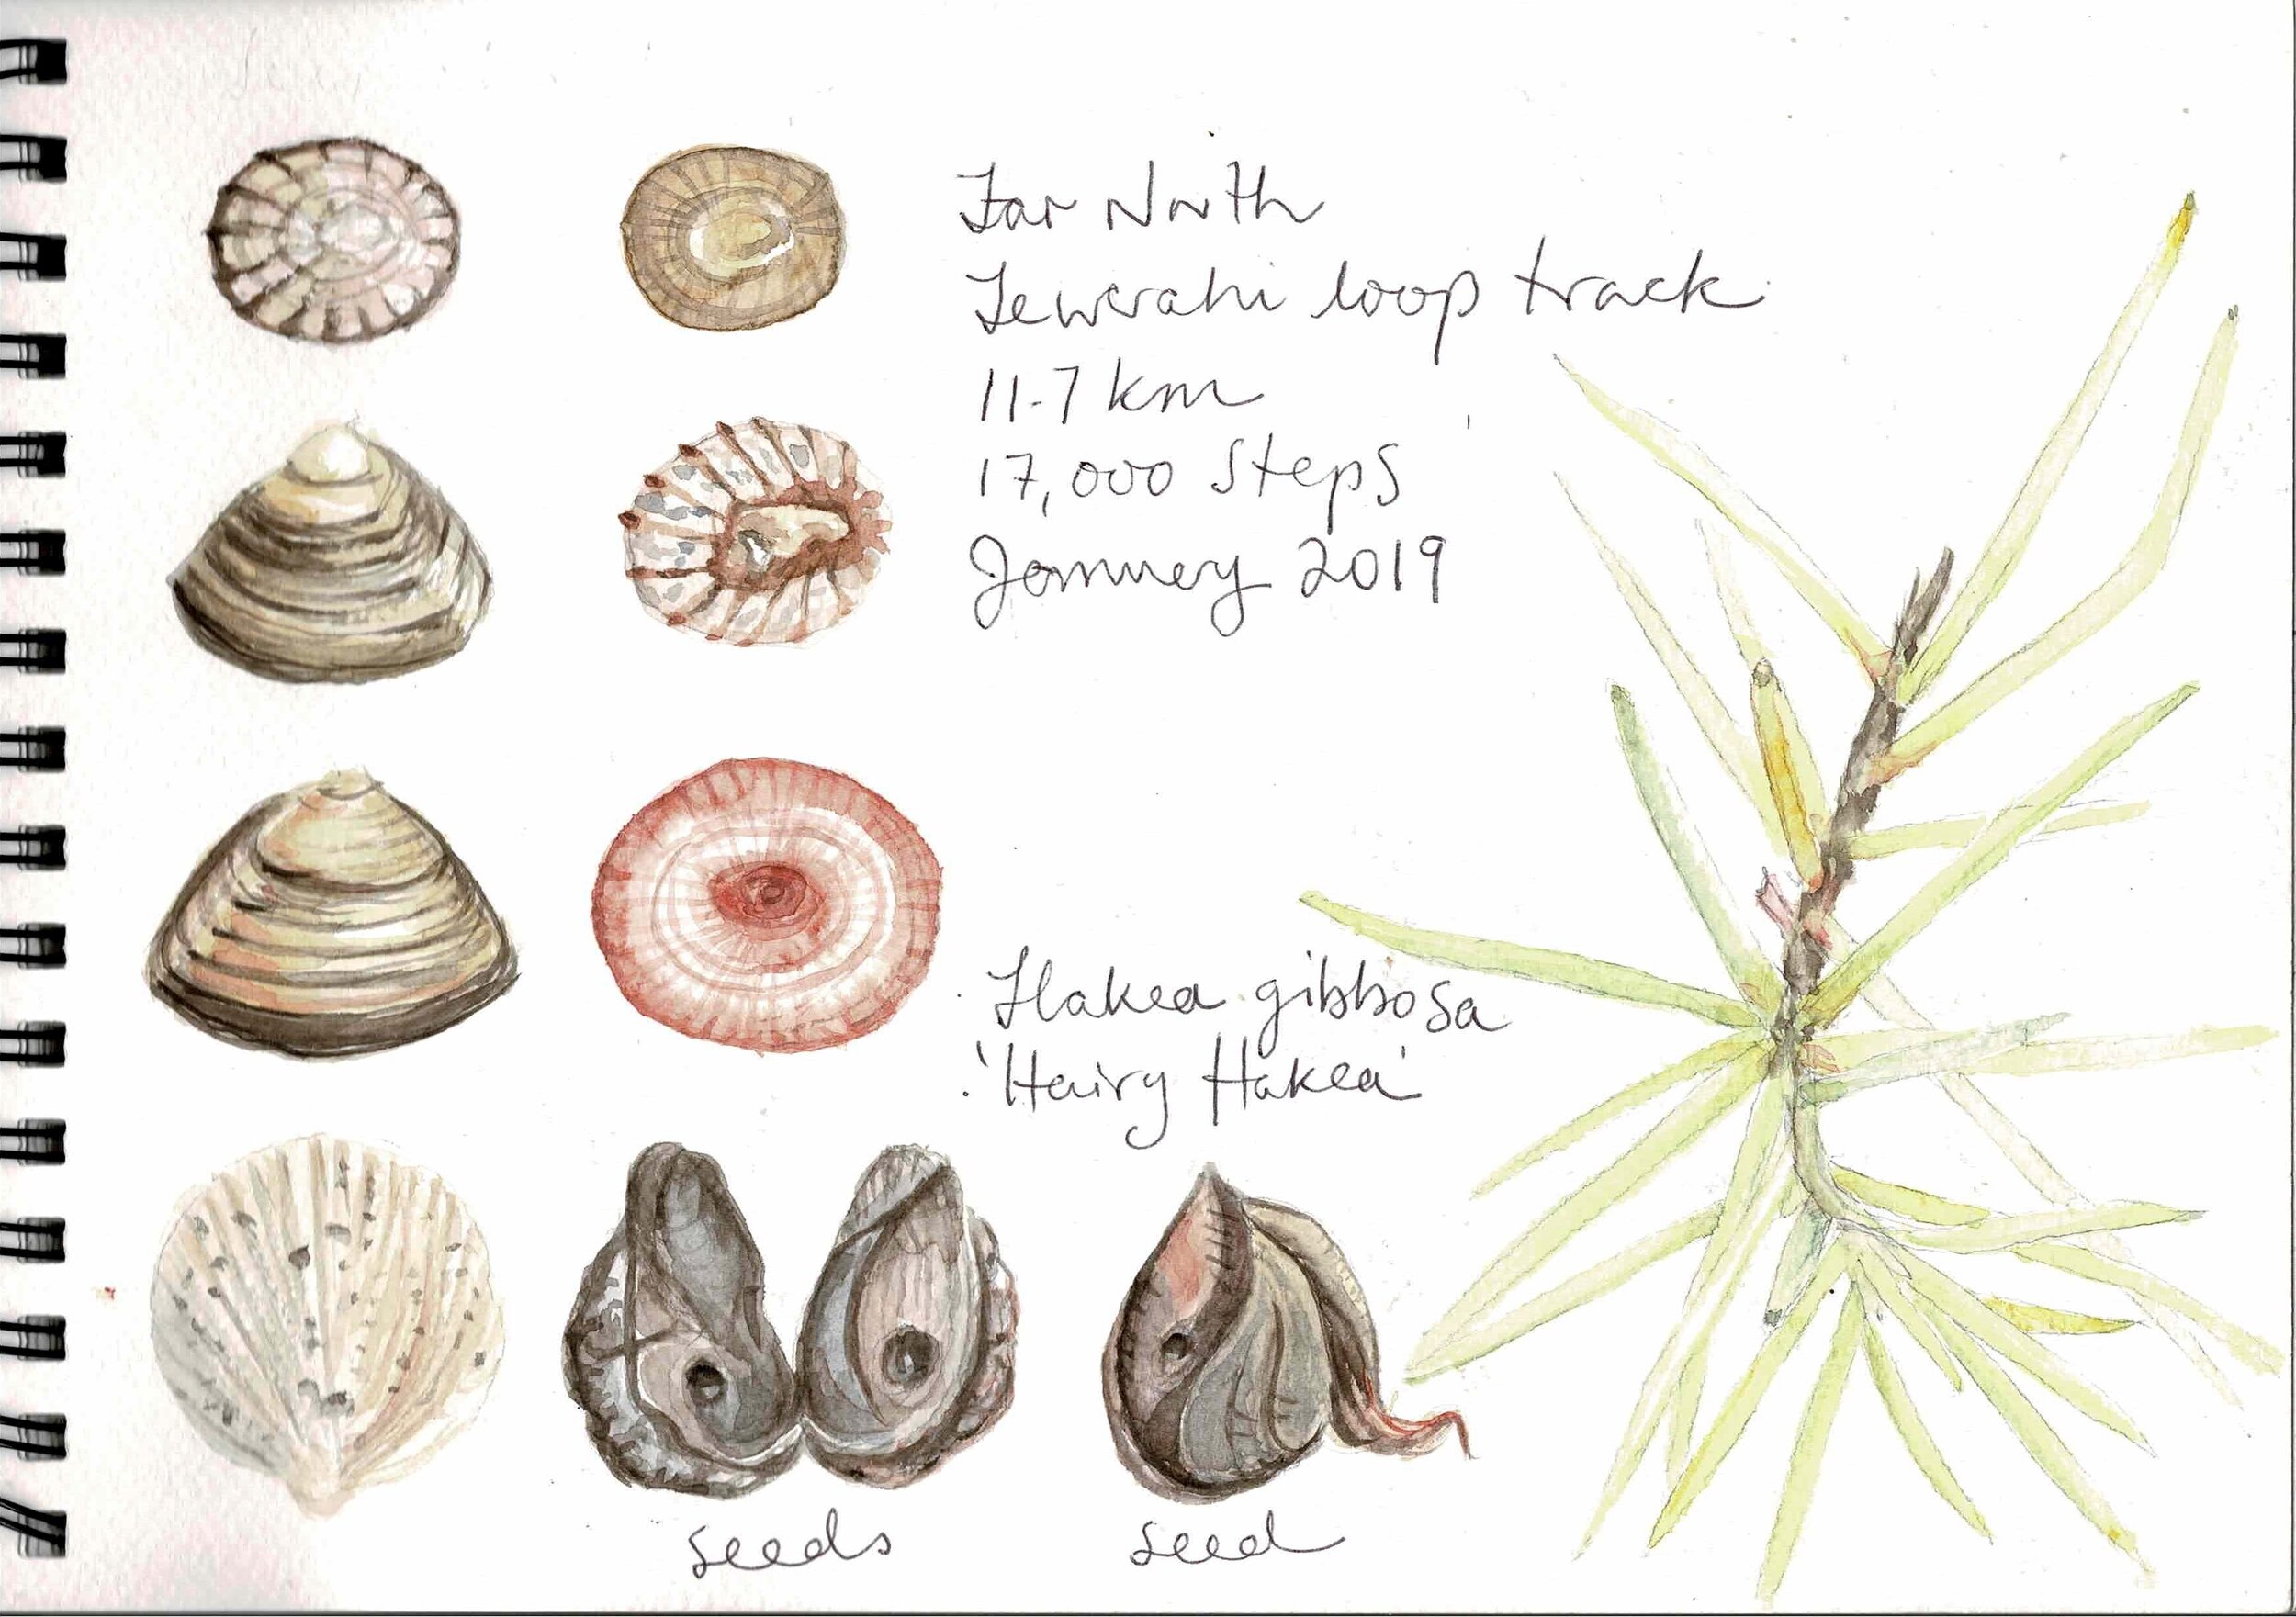 Far North
Tewerahi loop track
11.7 km
17,000 Steps
January 2019
Hakea gibbosa
'Hairy Hakea'
seeds
seed